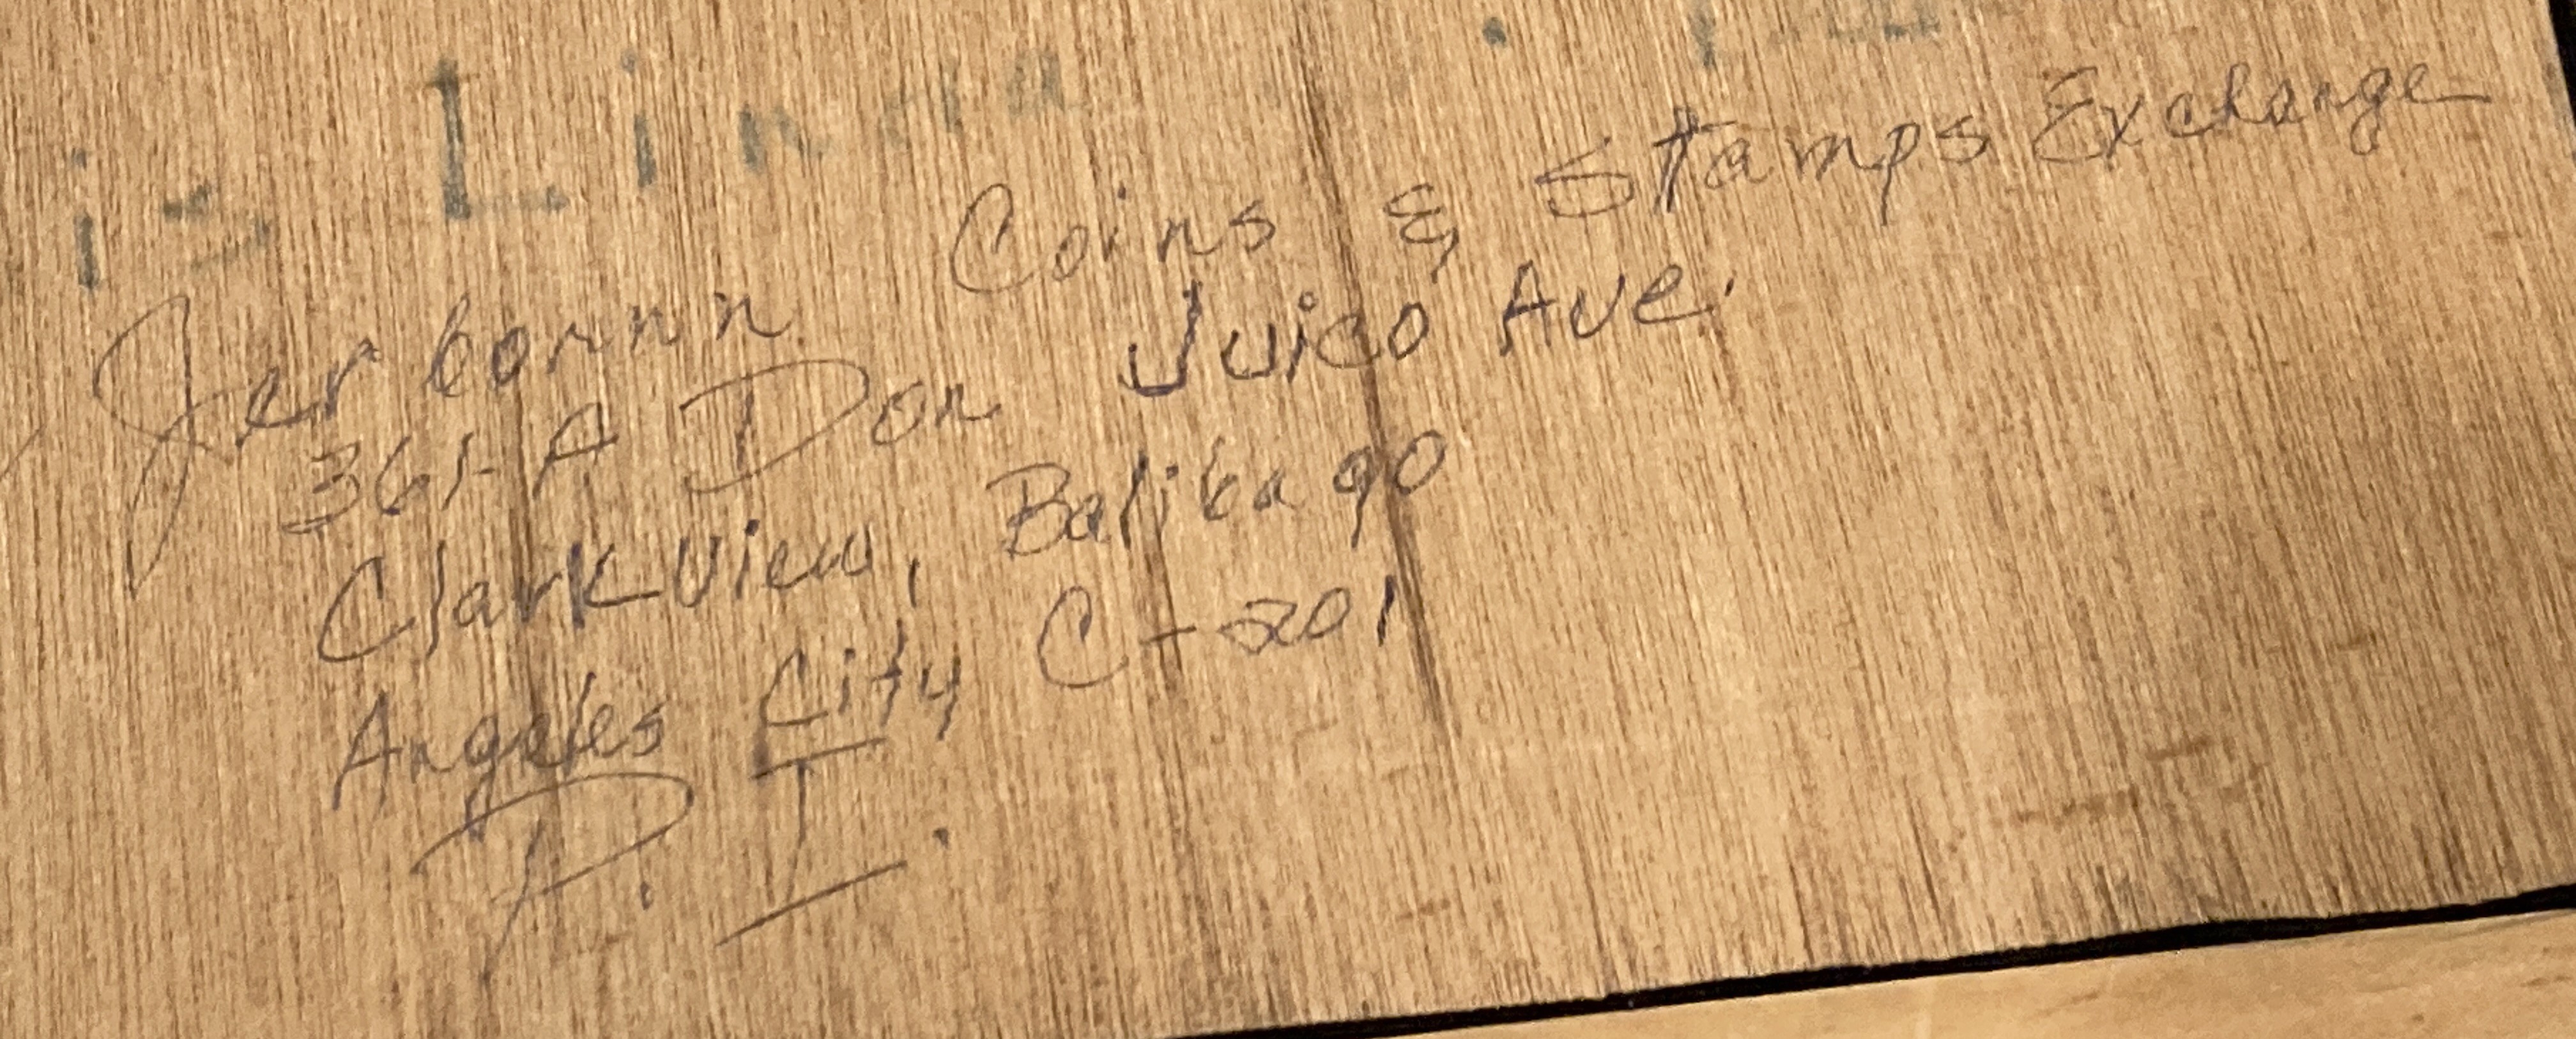 is Linda
Jerbornn Coins & Stamps Exchange
361-A Don Juico Ave.
Clarkview, Balibago
Angeles City C-201
P. I.